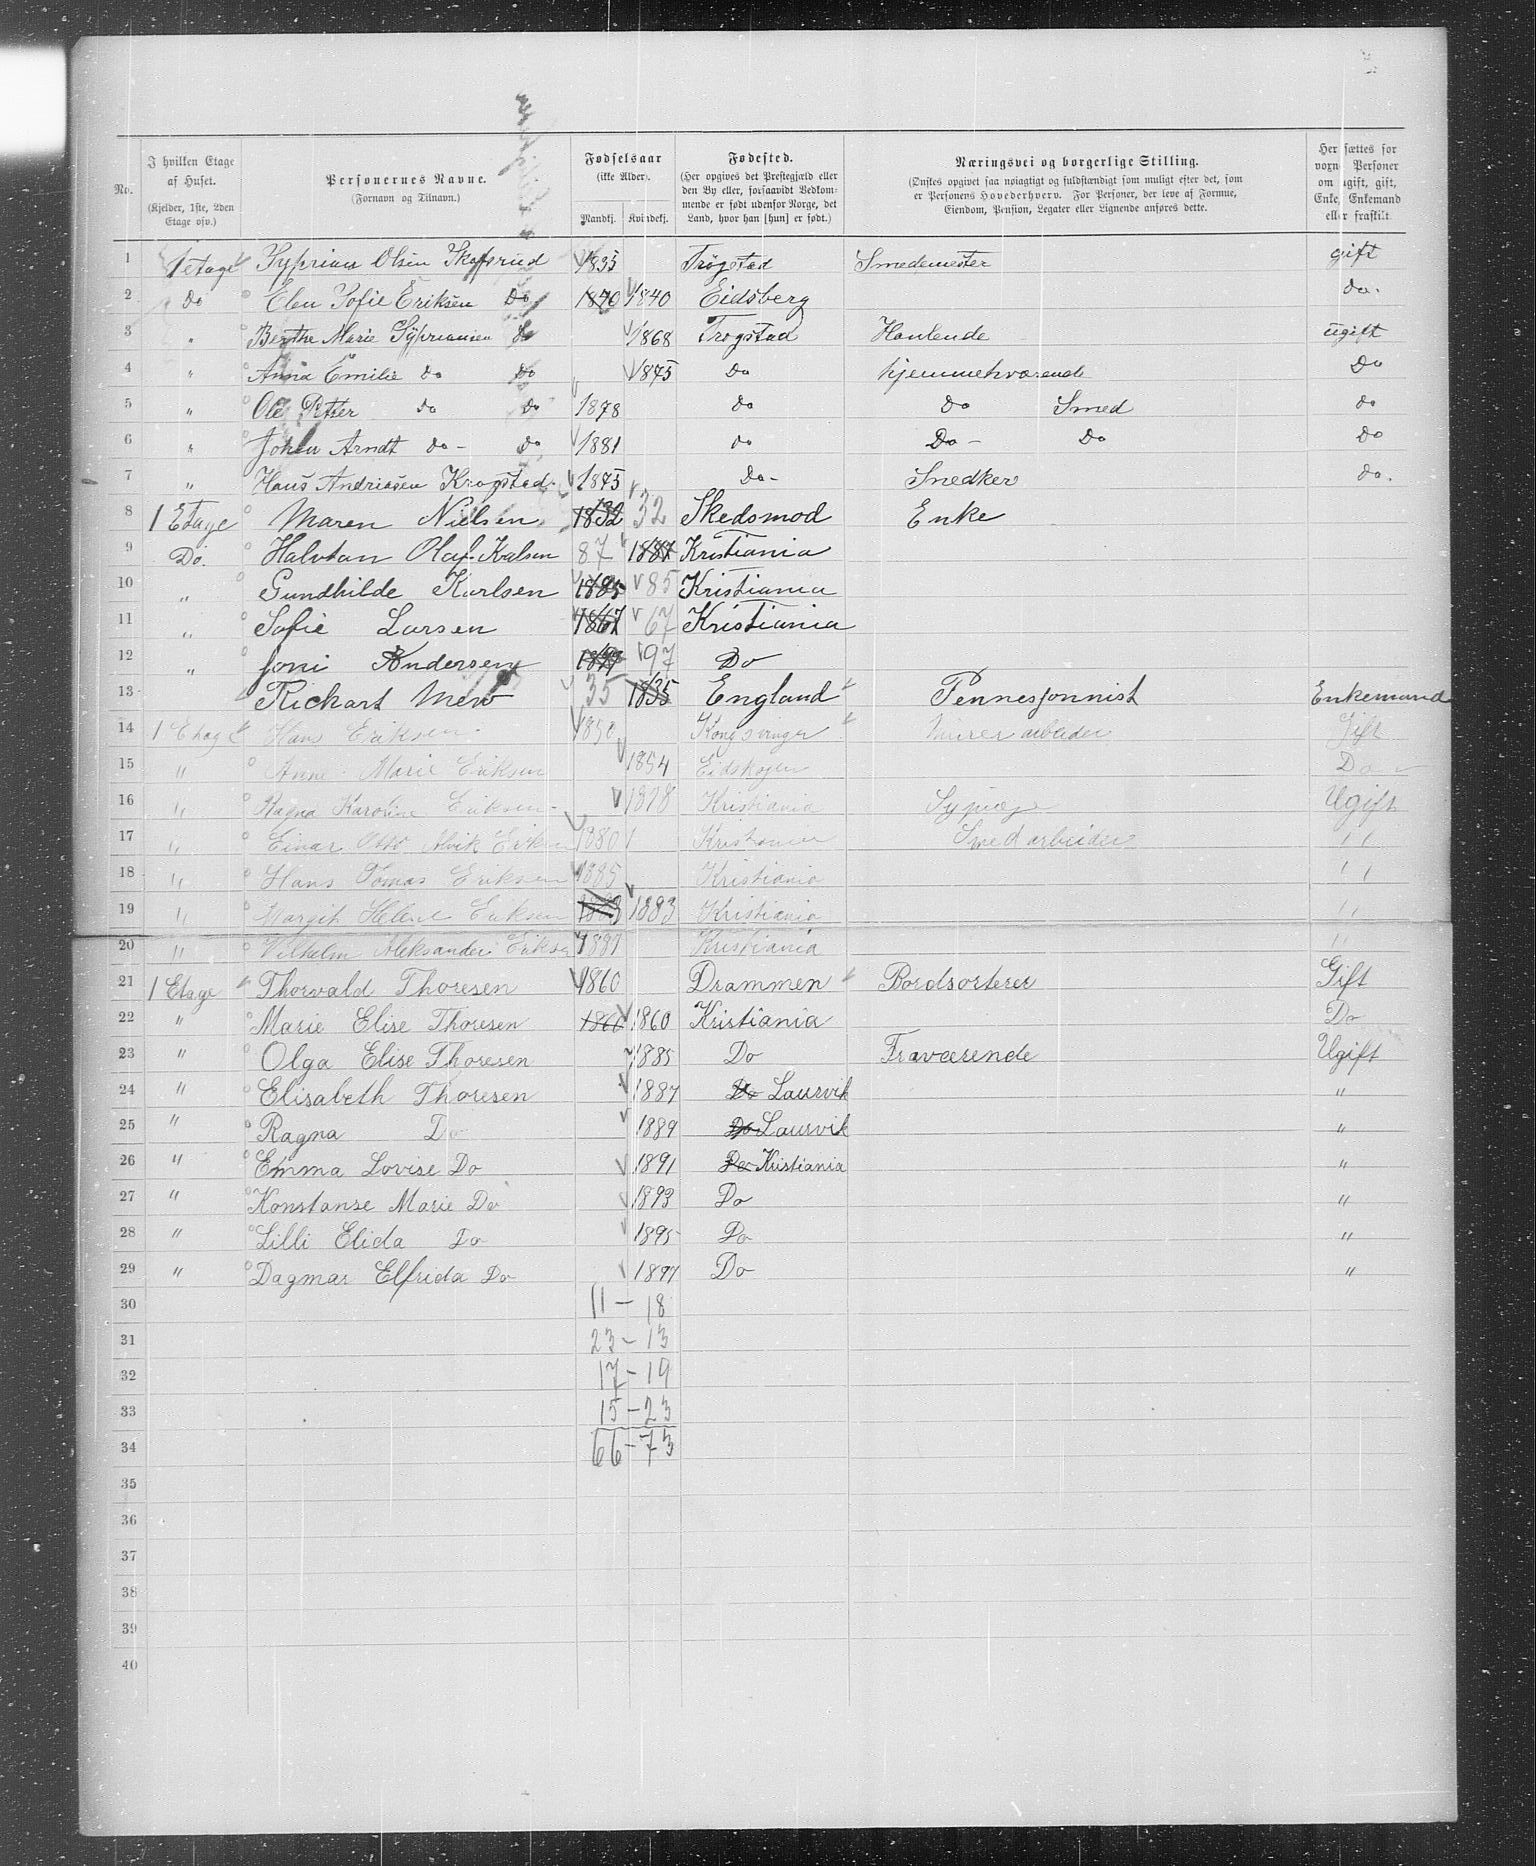 No. | I hvilken Etage af Huset. (Kjelder, 1ste, 2den Etage osv.) | Personernes Navne. (Fornavn og Tilnavn.) | Fødselsaar (ikke Alder). Mandkj. Kvindekj. | Fødested. (Her opgives det Prestegjæld eller den By eller, forsaavidt Vedkommende er født udenfor Norge, det Land, hvor han [hun] er født.) | Næringsvei og borgerlige Stilling. (Ønskes opgivet saa nøiagtigt og fuldstændigt som muligt efter det, som er Personens Hovederhverv. For Personer, der leve af Formue, Eiendom, Pension, Legater eller Lignende anføres dette. | Her sættes for voxne Personer om ugift, gift, Enke, Enkemand eller fraskilt.
1 | 1 etage | Syprian Olsen | 1835 | Trøgstad | Smedemester | gift
2 | Do | Elen Sofie Eriksen Do | 1840 1840 | Eidsberg | | Do.
3 | " | Berthe Marie Sypriansen Do | 1868 | Trøgstad | Hanlende | ugift
4 | " | Anna Emilie Do Do | 1875 | Do | hjemmehværende | Do
5 | " | Ole Petter Do Do | 1878 | Do | Do Smed | Do
6 | " | Johan Arndt Do - Do | 1881 | Do | Do - Do | Do
7 | " | Hans Andriasen Krogstad. | 1875 | Do - | Snedker | Do.
8 | 1 Etage | Maren Nielsen | 1832 32 | Skedsmod | Enke
9 | Do. | Halvtan Olaf Kalsen | 87 1887 | Kristiania
10 | " | Gundhilde Karlsen | 1885 85 | Kristiania
11 | " | Sofie Larsen | 1867 67 | Kristiania
12 | " | Joni Andersen | 1897 97 | Do
13 | Rickart Mew | 35 1835 | England | Pennesjonnist | Enkemand
14 | 1 Etage | Hans Eriksen | 1850 | Kongsvinger | Murer arbeider | Gift
15 | " | Anne Marie Eriksen | 1854 | Eidskogen | | Do
16 | " | Ragna Karoline Eriksen | 1878 | Kristiania | Sypige | Ugift
17 | " | Einar Otto Alvik Eriksen | 1880 | Kristiania | Smedarbeider | "
18 | " | Hans Tomas Eriksen | 1885 | Kristiania | | "
19 | " | Margit Helene Eriksen | 1883 1883 | Kristiania | | "
20 | " | Vilhelm Aleksander Eriksen | 1887 | Kristiania | | "
21 | 1 Etage | Thorvald Thoresen | 1860 | Drammen | Bordsorterer | Gift
22 | " | Marie Elise Thoresen | 1860 1860 | Kristiania | | Do
23 | " | Olga Elise Thoresen | 1885 | Do | Fraværende | Ugift
24 | " | Elisabeth Thoresen | 1887 | Do Laurvik | | "
25 | " | Ragna Do | 1889 | Do Laurvik | | "
26 | " | Emma Lovise Do | 1891 | Do Kristiania | | "
27 | " | Konstanse Marie Do | 1893 | Do | | "
28 | " | Lilli Elida Do | 1895 | Do | | "
29 | " | Dagmar Elfrida Do | 1897 | Do | | "
30 | 11 - 18
31 | 23 - 13
32 | 17 - 19
33 | 15 - 23
34 | 66 - 73
35
36
37
38
39
40